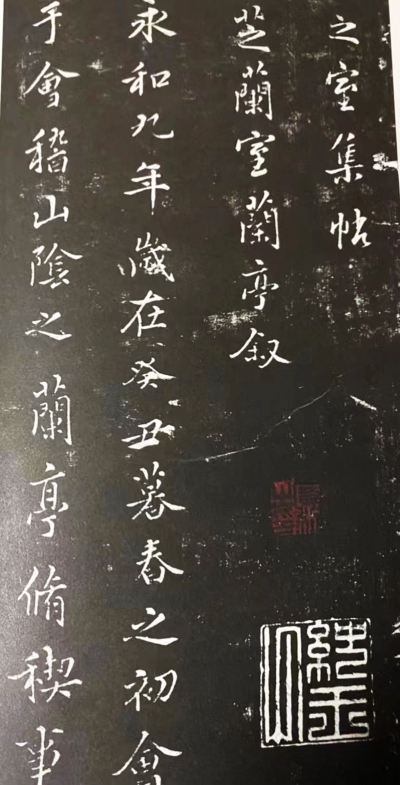 之室集帖
芝蘭室蘭亭叙
永和九年歲在癸丑暮春之初會
于會稽山陰之蘭亭脩稧事